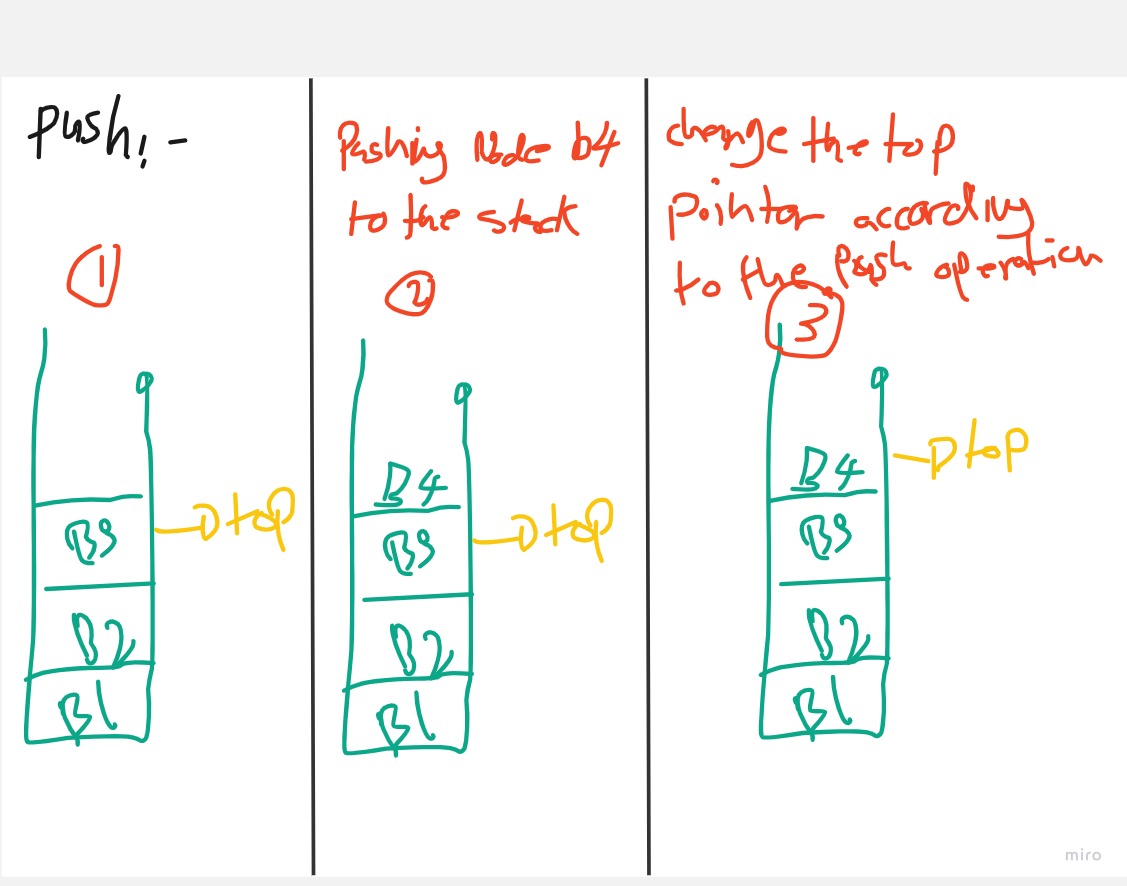 Push:-
①
B3
top
B2
B1
Pushing Node b4
to the stack
②
B4
B3
top
B2
B1
change the top
pointer according
to the push operation
③
B4
top
B3
B2
B1
miro